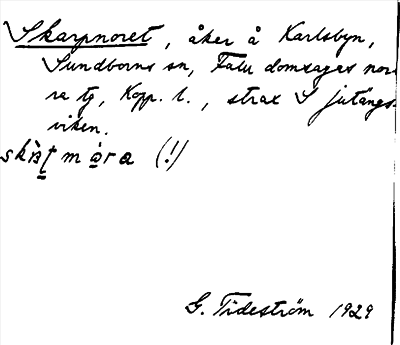 Skarpnoret, åker å Karlsbyn,
Sundborns sn, Falu domsagas nor
ra tg, Kopp. l., strax S jutängs
viken.
(!)
G. Tideström 1929